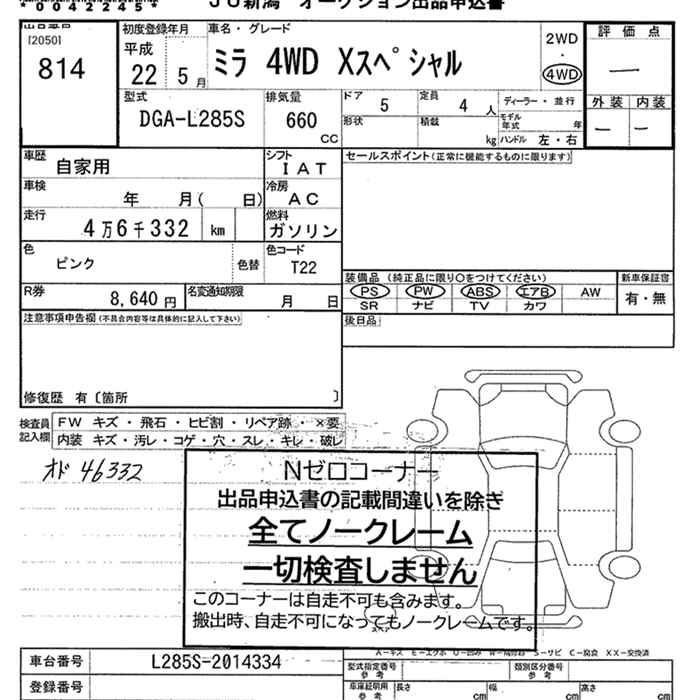 *0042245*
JU新潟 オークション出品申込書
[2050]
814
初度登録年月
平成
22年 5月
車名・グレード
ミラ 4WD Xスペシャル
2WD
・
4WD
評価点
—
外装 内装
— —
型式
DGA-L285S
排気量
660
CC
ドア
5
定員
4人
形状
積載
kg
ディーラー・並行
モデル年式 年
ハンドル 左・右
車歴
自家用
シフト
IAT
車検
年 月( 日)
冷房
AC
走行
4万6千332 km
燃料
ガソリン
色
ピンク
色替
色コード
T22
R券
8,640円
名変通知期限
月 日
セールスポイント(正常に機能するものに限ります)
装備品(純正品に限り○をつけてください)
PS PW ABS エアB AW
SR ナビ TV カワ
新車保証書
有・無
後日品
注意事項申告欄(不具合内容等は具体的に記入して下さい)
修復歴 有〔箇所 〕
検査員記入欄
FW キズ・飛石・ヒビ割・リペア跡・×要
内装 キズ・汚レ・コゲ・穴・スレ・キレ・破レ
オド 46332
Nゼロコーナー
出品申込書の記載間違いを除き
全てノークレーム
一切検査しません
このコーナーは自走不可も含みます。
搬出時、自走不可になってもノークレームです。
車台番号
L285S-2014334
登録番号
型式指定番号
参考
類別区分番号
参考
車庫証明用
参考
長さ cm
幅 cm
高さ cm